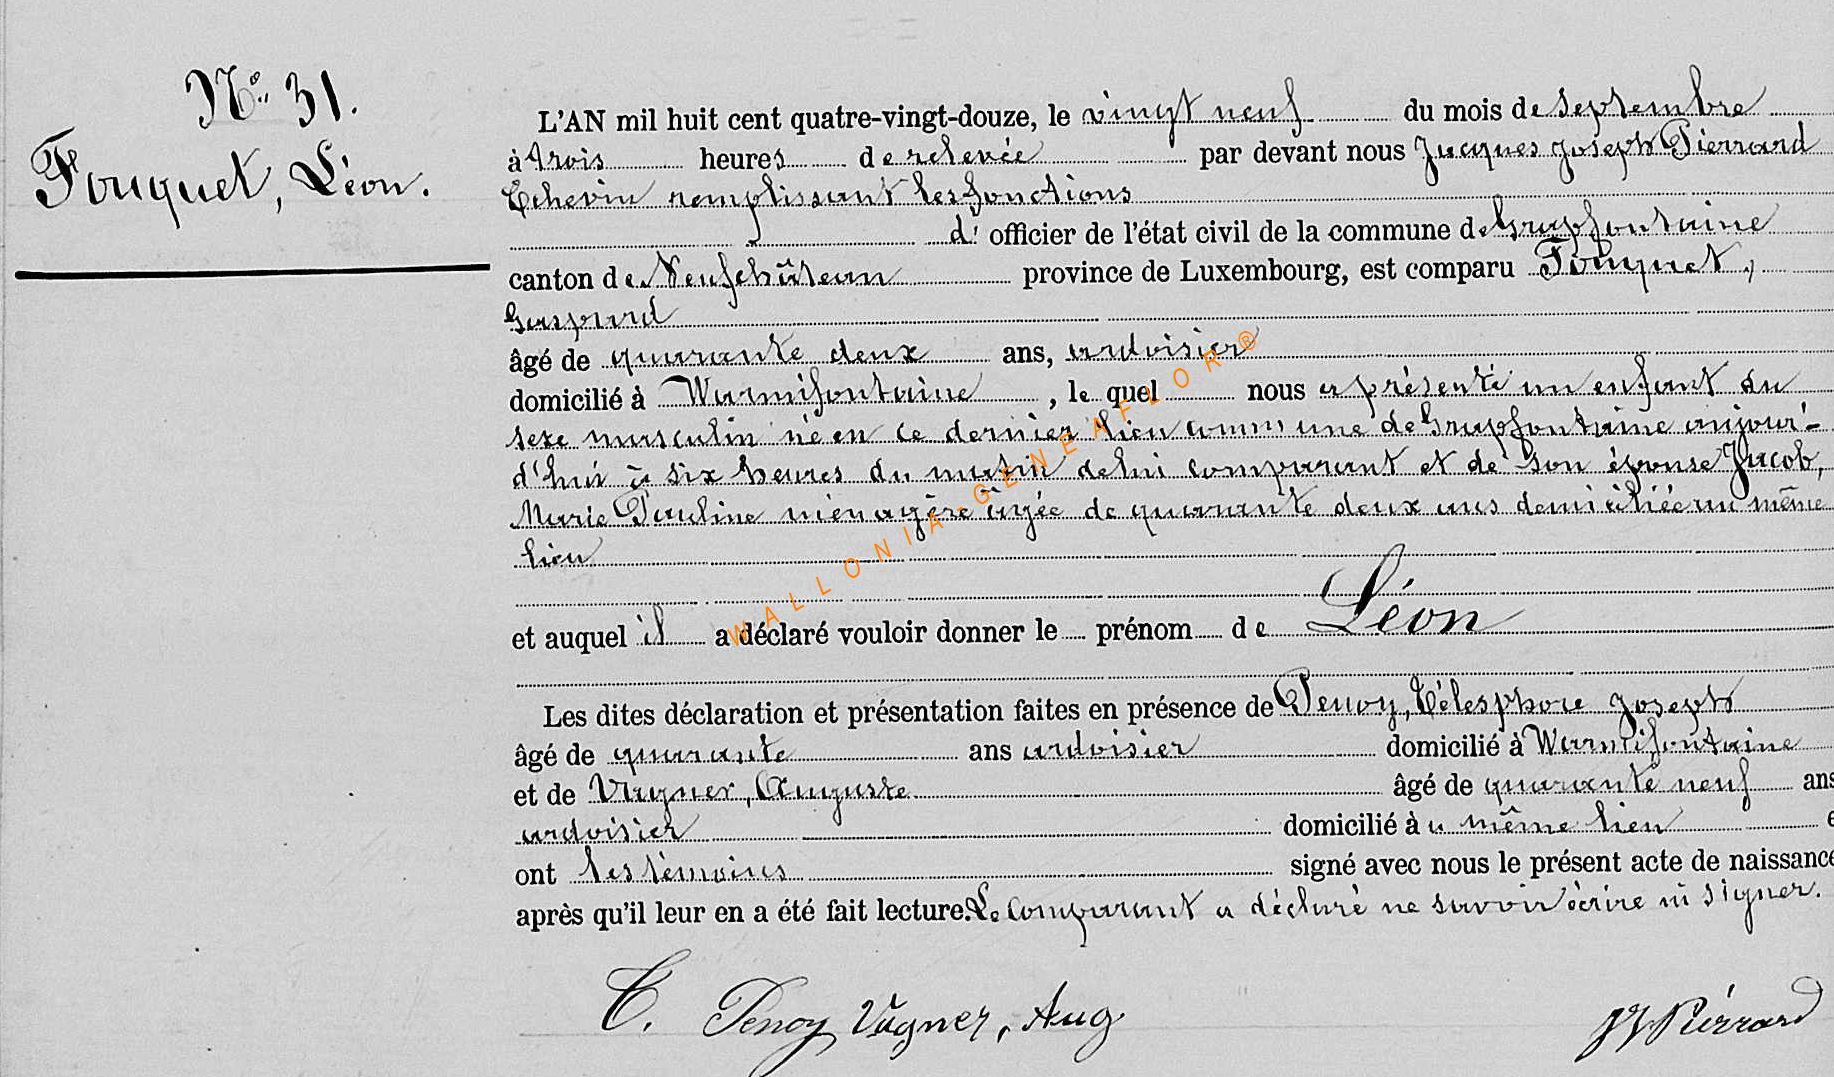 N° 31.
Fouquet, Léon.
L'AN mil huit cent quatre-vingt-douze, le vingt neuf du mois de Septembre
à trois heures de relevée par devant nous Jacques Joseph Pierrard
Echevin remplissant les fonctions
d' officier de l'état civil de la commune de Grapfontaine
canton de Neufchâteau province de Luxembourg, est comparu Fouquet,
Gaspard
âgé de quarante deux ans, ardoisier
domicilié à Warmifontaine, le quel nous a présenté un enfant du
sexe masculin né en ce dernier lieu commune de Grapfontaine aujour-
d'hui à six heures du matin de lui comparant et de son épouse Jacob,
Marie Pauline ménagère âgée de quarante deux ans domiciliée au même
lieu
et auquel il a déclaré vouloir donner le prénom de Léon
Les dites déclaration et présentation faites en présence de Penoy, Télesphore Joseph
âgé de quarante ans ardoisier domicilié à Warmifontaine
et de Vagner, Auguste âgé de quarante neuf ans
ardoisier domicilié au même lieu e
ont les témoins signé avec nous le présent acte de naissance
après qu'il leur en a été fait lecture. Le Comparant a déclaré ne savoir écrire ni signer.
T. Penoy Vagner, Aug JJ Pierrard
WALLONIA-GENEAFLOR®